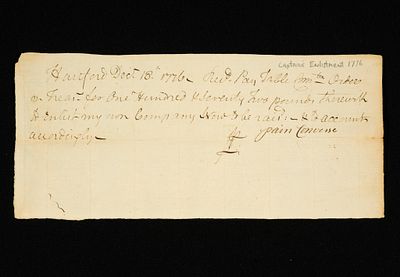 Captains Enlistment 1776
Hartford Decr 18t 1776 – Recd Pay Table Comtee Orders
on Treasr for One Hundred & Seventy Two pounds therewith
to Enlist my own Company Now to be raisd – & to account
accordingly –
pain Converse